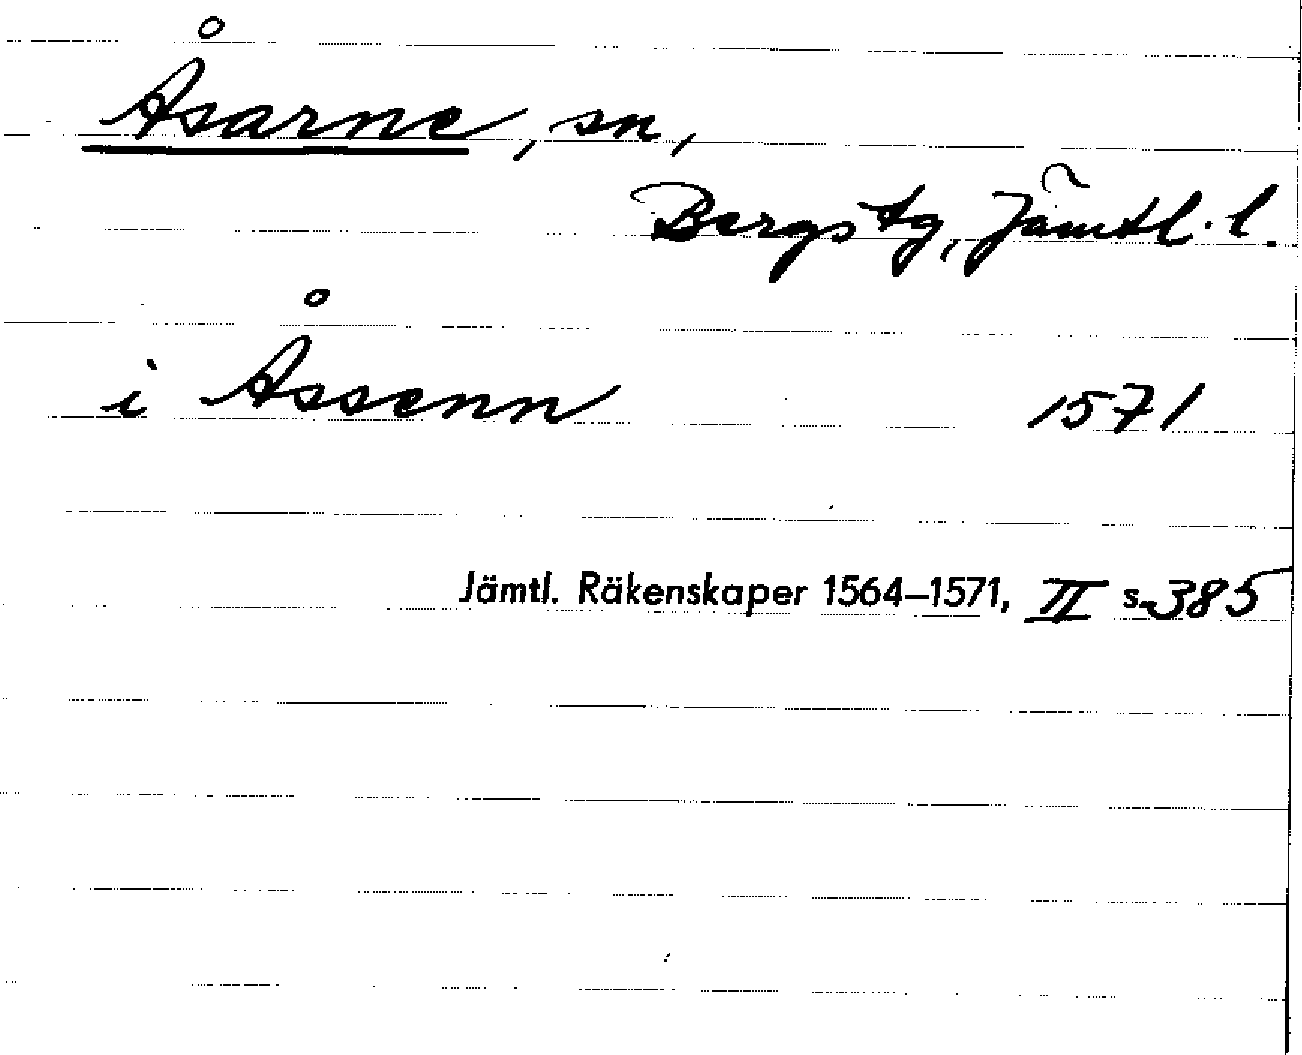 Åsarne, sn,
Bergs tg, Jämtl. l.
i Åssenn 1571
Jämtl. Räkenskaper 1564–1571, II s. 385